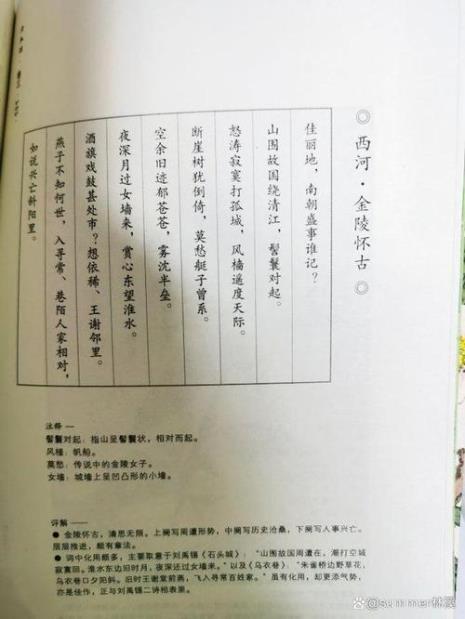 ◎ 西河·金陵怀古 ◎
佳丽地，南朝盛事谁记？
山围故国绕清江，髻鬟对起。
怒涛寂寞打孤城，风樯遥度天际。
断崖树犹倒倚，莫愁艇子曾系。
空余旧迹郁苍苍，雾沈半垒。
夜深月过女墙来，赏心东望淮水。
酒旗戏鼓甚处市？想依稀、王谢邻里。
燕子不知何世，入寻常、巷陌人家相对，
如说兴亡斜阳里。
注释
髻鬟对起：指山呈髻鬟状，相对而起。
风樯：帆船。
莫愁：传说中的金陵女子。
女墙：城墙上呈凹凸形的小墙。
评解
● 金陵怀古，清思无限。上阕写周遭形势，中阕写历史沧桑，下阕写人事兴亡。
层层推进，颇有章法。
● 词中化用颇多，主要取意于刘禹锡《石头城》："山围故国周遭在，潮打空城
寂寞回。淮水东边旧时月，夜深还过女墙来。"以及《乌衣巷》："朱雀桥边野草花，
乌衣巷口夕阳斜。旧时王谢堂前燕，飞入寻常百姓家。"虽有化用，却更添气势，
亦是佳作，正与刘禹锡二诗相表里。
@summer林溪